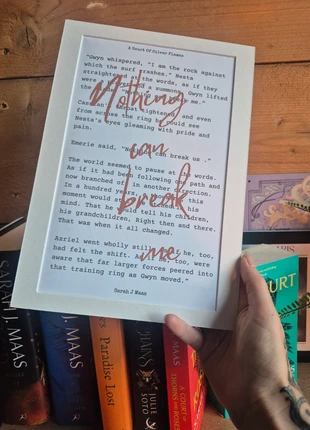 A Court Of Silver Flames
"Gwyn whispered, "I am the rock against
which the surf crashes." Nesta
straightened at the words, as if they
were a prayer and a summons. Gwyn lifted
the
me."
Cassian's throat tightened, and even
from across the ring he could see
Nesta's eyes gleaming with pride and
pain.
Emerie said, "Nothing can break us."
The world seemed to pause at the words.
As if it had been following one path and
now branched off in another direction.
In a hundred years, a thousand, this
moment would still be etched in his
mind. That he would tell his children,
his grandchildren, Right then and there.
That was when it all changed.
Azriel went wholly still, as if he, too,
had felt the shift. As if he, too, were
aware that far larger forces peered into
that training ring as Gwyn moved."
Nothing
can
break
me
Sarah J Maas
SARAH
J. MAAS
J. MAAS
Paradise Lost
JULIE
SOTO
A COURT
OF
THORNS AND ROSES
COURT